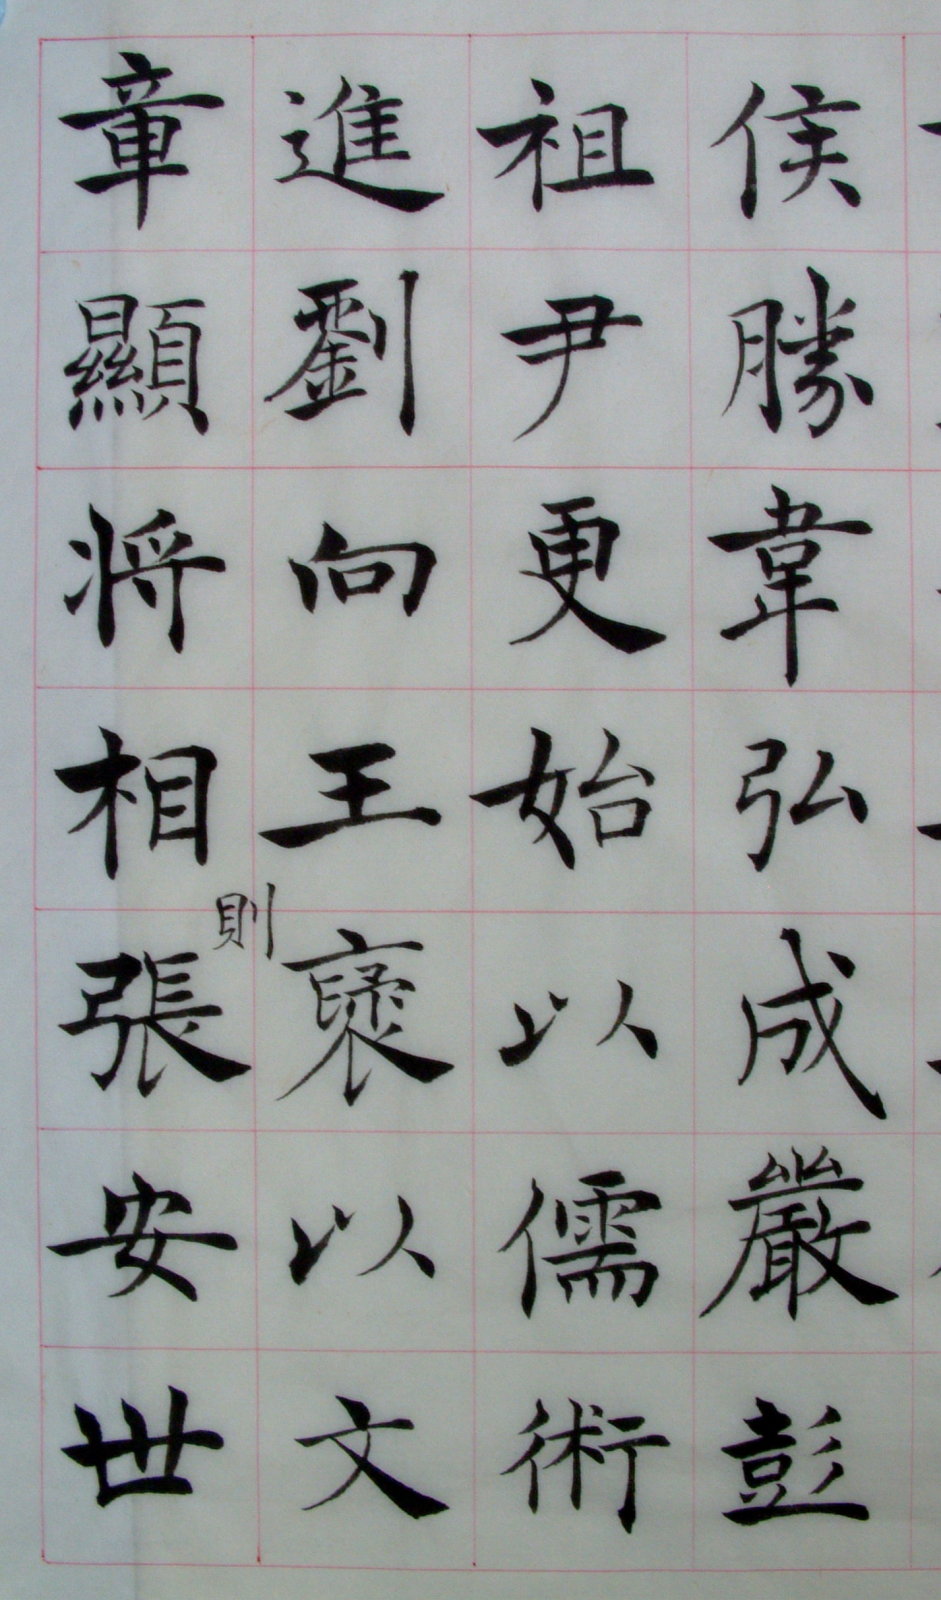 侯勝韋弘成嚴彭
祖尹更始以儒術
進劉向王褒以文
章顯将相則張安世